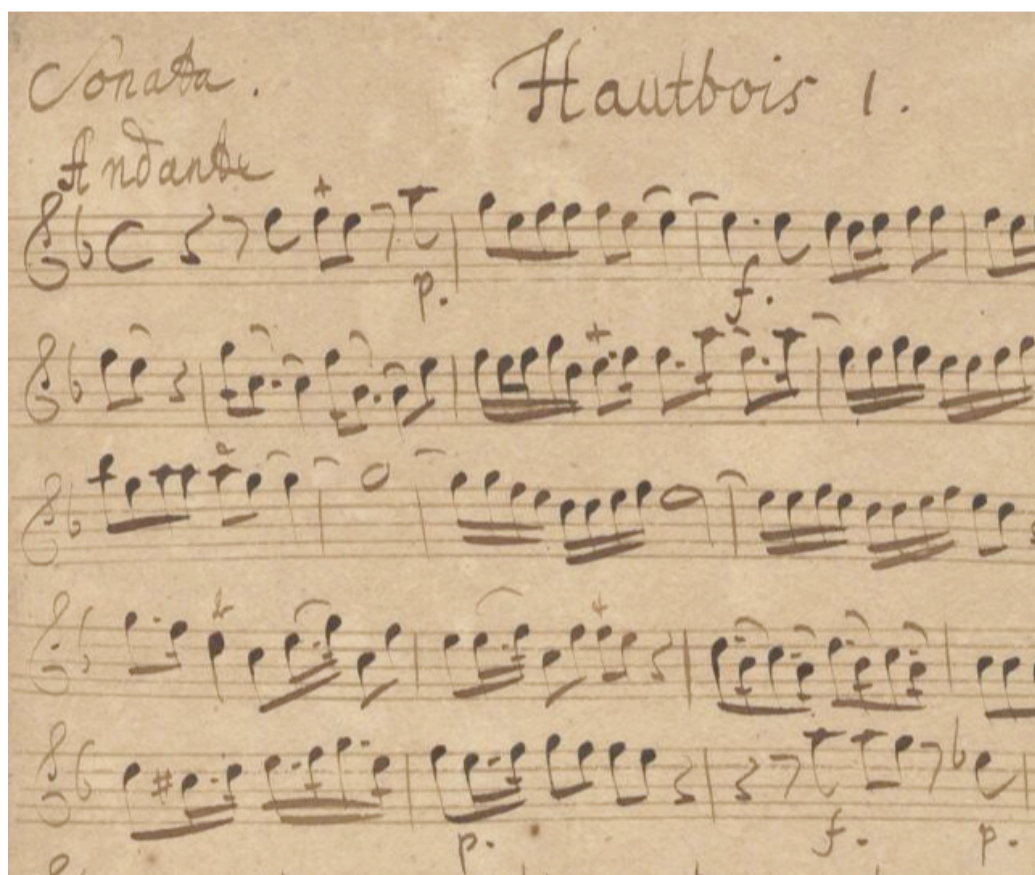 Sonata. Hautbois 1.
Andante
p. f.
p. f. p.